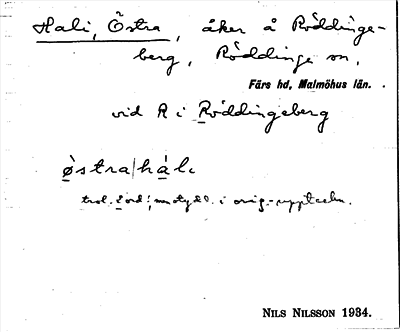 Hali, Östra, åker å Röddinge-
berg, Röddinge sn,
Färs hd, Malmöhus län.
vid R i Röddingeberg
östra|háli
trol. 2 ord; i orig.-uppteckn.
NILS NILSSON 1934.